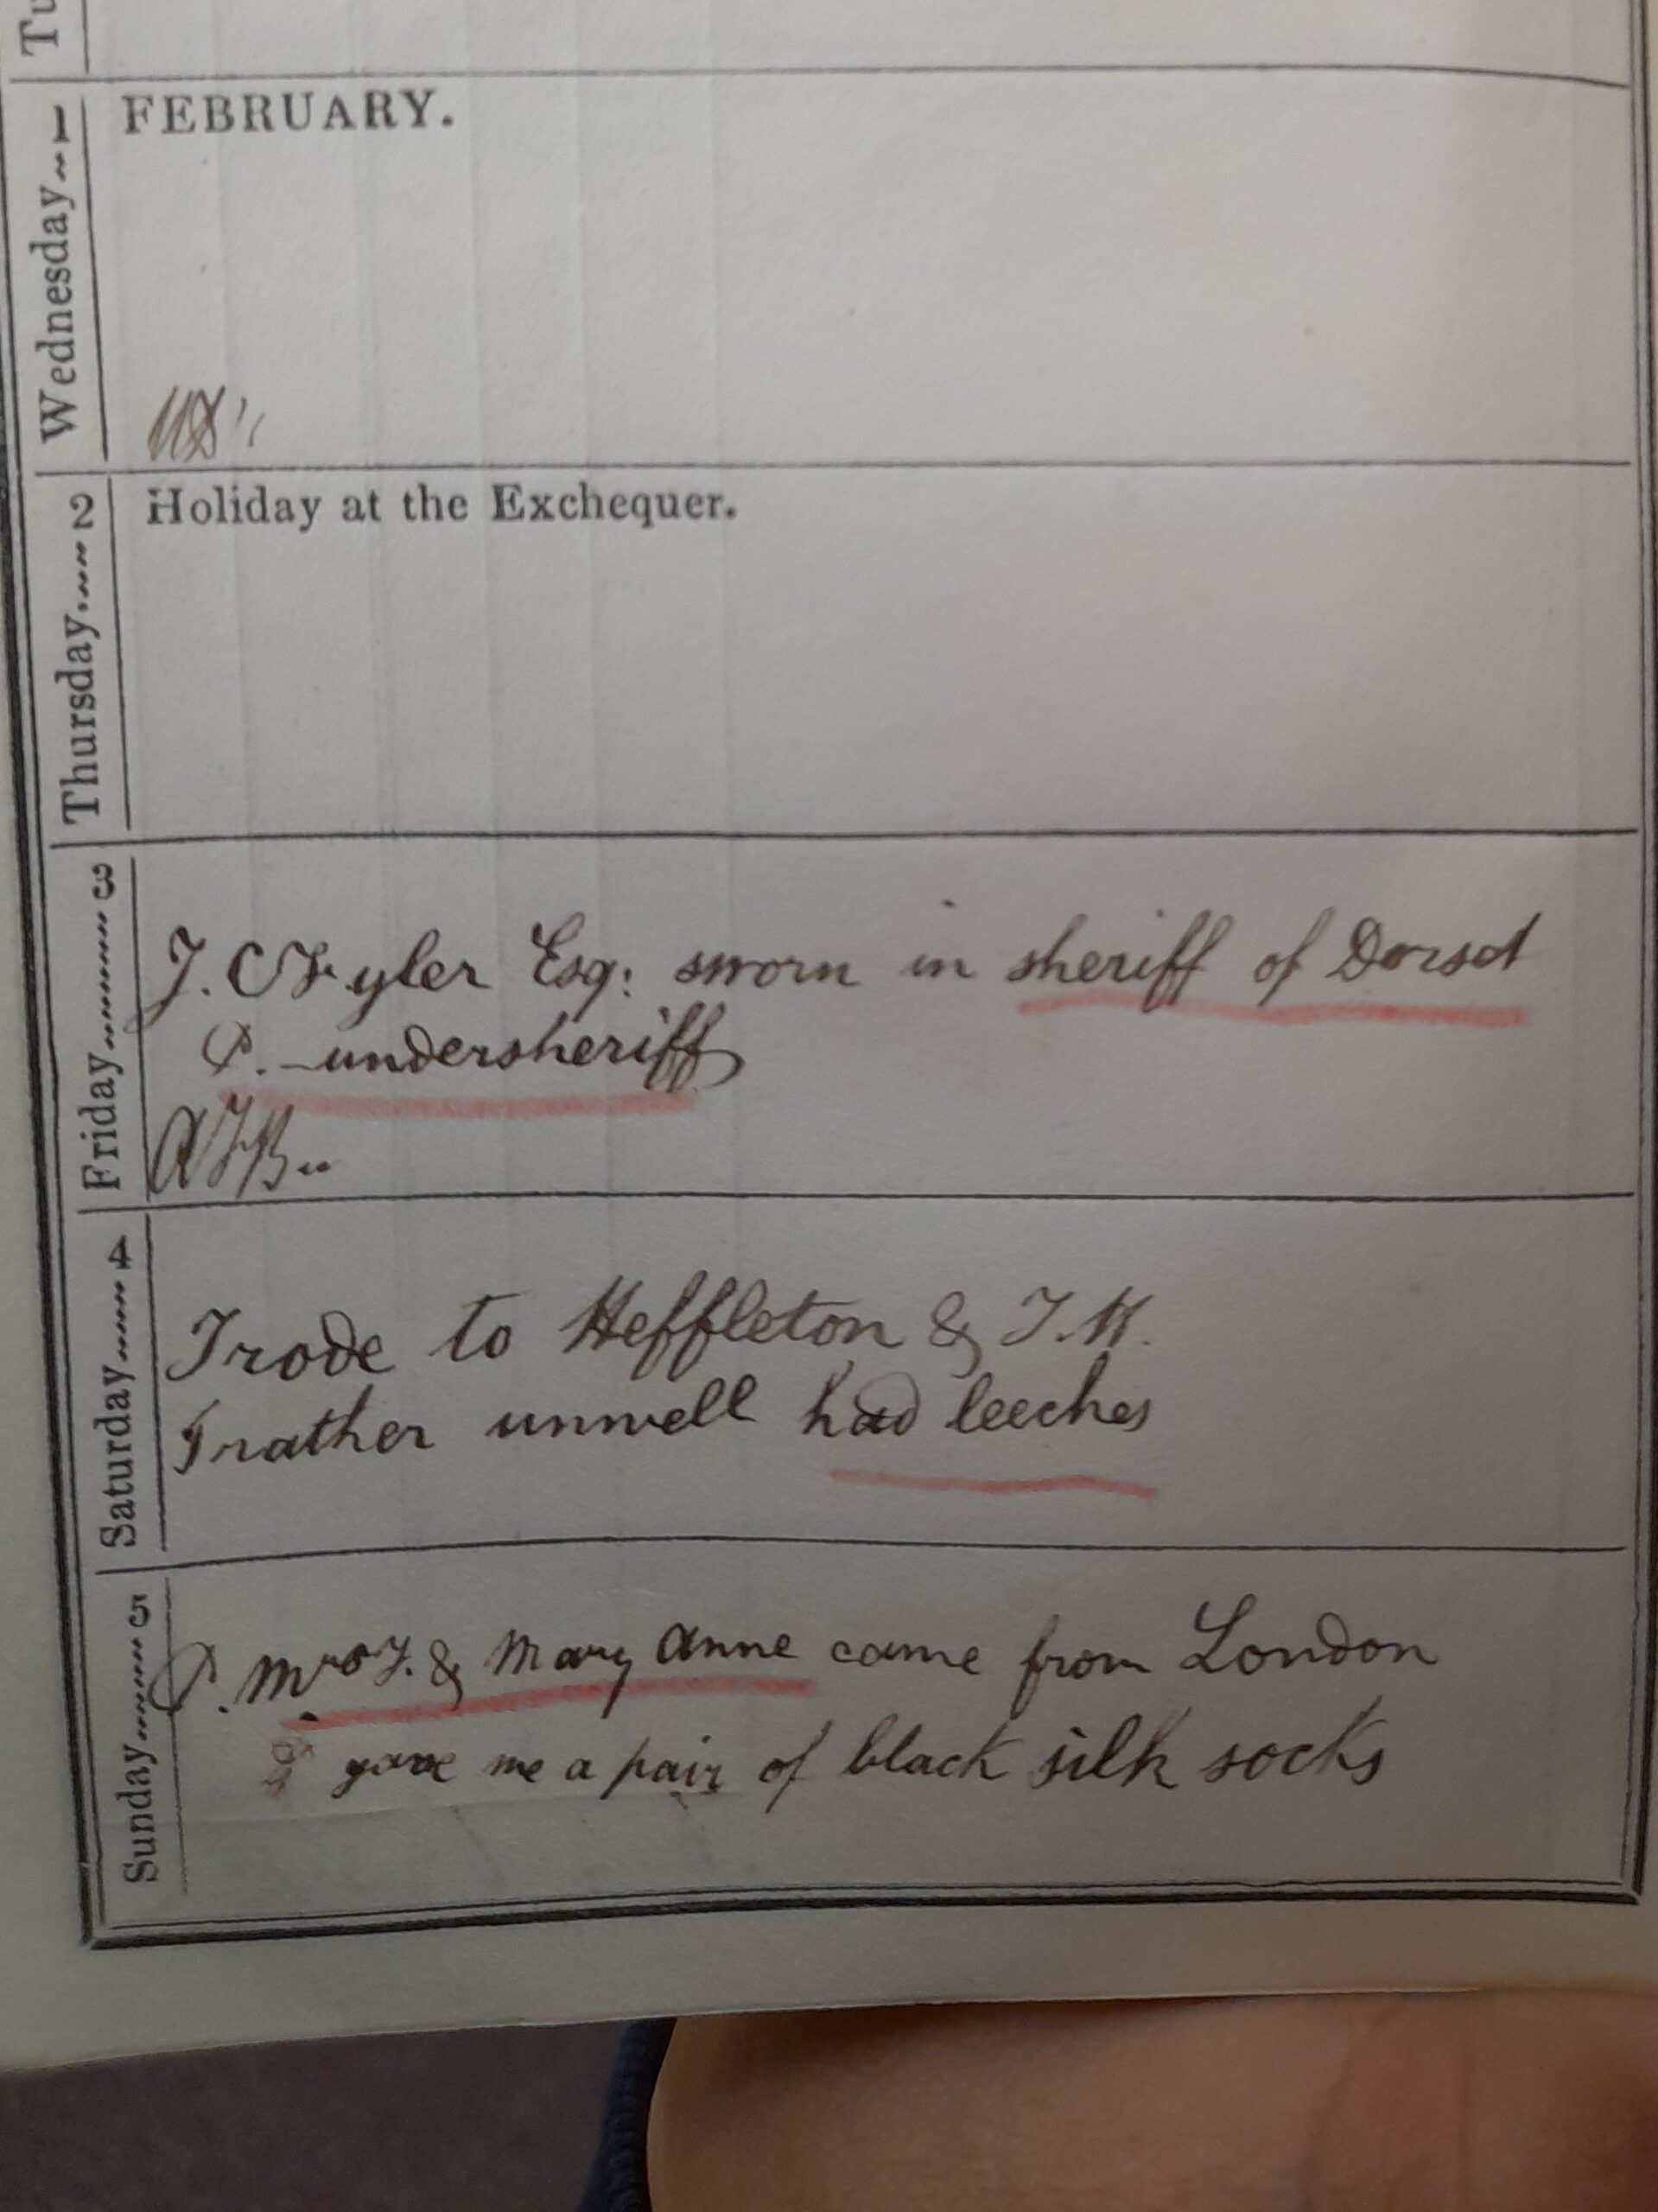 Tu
Wednesday 1
FEBRUARY.
Thursday 2
Holiday at the Exchequer.
Friday 3
J. C. Fyler Esq: sworn in sheriff of Dorset
P. - undersheriff
AFB
Saturday 4
I rode to Heffleton & T.H.
I rather unwell had leeches
Sunday 5
P. Mrs F. & Mary Anne came from London
& gave me a pair of black silk socks